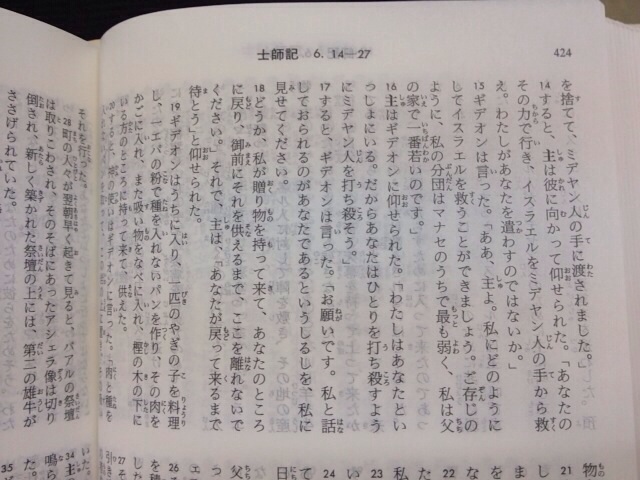 士師記 6. 14—27
424
を捨てて、ミデヤン人の手に渡されました。」
14すると、主は彼に向かって仰せられた。「あなたの
その力で行き、イスラエルをミデヤン人の手から救
え。わたしがあなたを遣わすのではないか。」
15ギデオンは言った。「ああ、主よ。私にどのように
してイスラエルを救うことができましょう。ご存じの
ように、私の分団はマナセのうちで最も弱く、私は父
の家で一番若いのです。」
16主はギデオンに仰せられた。「わたしはあなたとい
っしょにいる。だからあなたはひとりを打ち殺すよう
にミデヤン人を打ち殺そう。」
17すると、ギデオンは言った。「お願いです。私と話
しておられるのがあなたであるというしるしを、私に
見せてください。
18どうか、私が贈り物を持って来て、あなたのところ
に戻り、御前にそれを供えるまで、ここを離れないで
ください。」それで、主は、「あなたが戻って来るまで
待とう」と仰せられた。
19ギデオンはうちに入り、一匹のやぎの子を料理
し、一エパの粉で種を入れないパンを作り、その肉を
かごに入れ、また吸い物をなべに入れ、樫の木の下に
いる方のところに持って来て、供えた。
ギデオンに言った。「肉と種を
28町の人々が翌朝早く起きて見ると、バアルの祭壇
は取りこわされ、そのそばにあったアシェラ像は切り
倒され、新しく築かれた祭壇の上には、第二の雄牛が
ささげられていた。
物
21
し
ま
22
た
23
私
い
24
て
日
父
エ
26
27
34主
鳴ら
た。
35